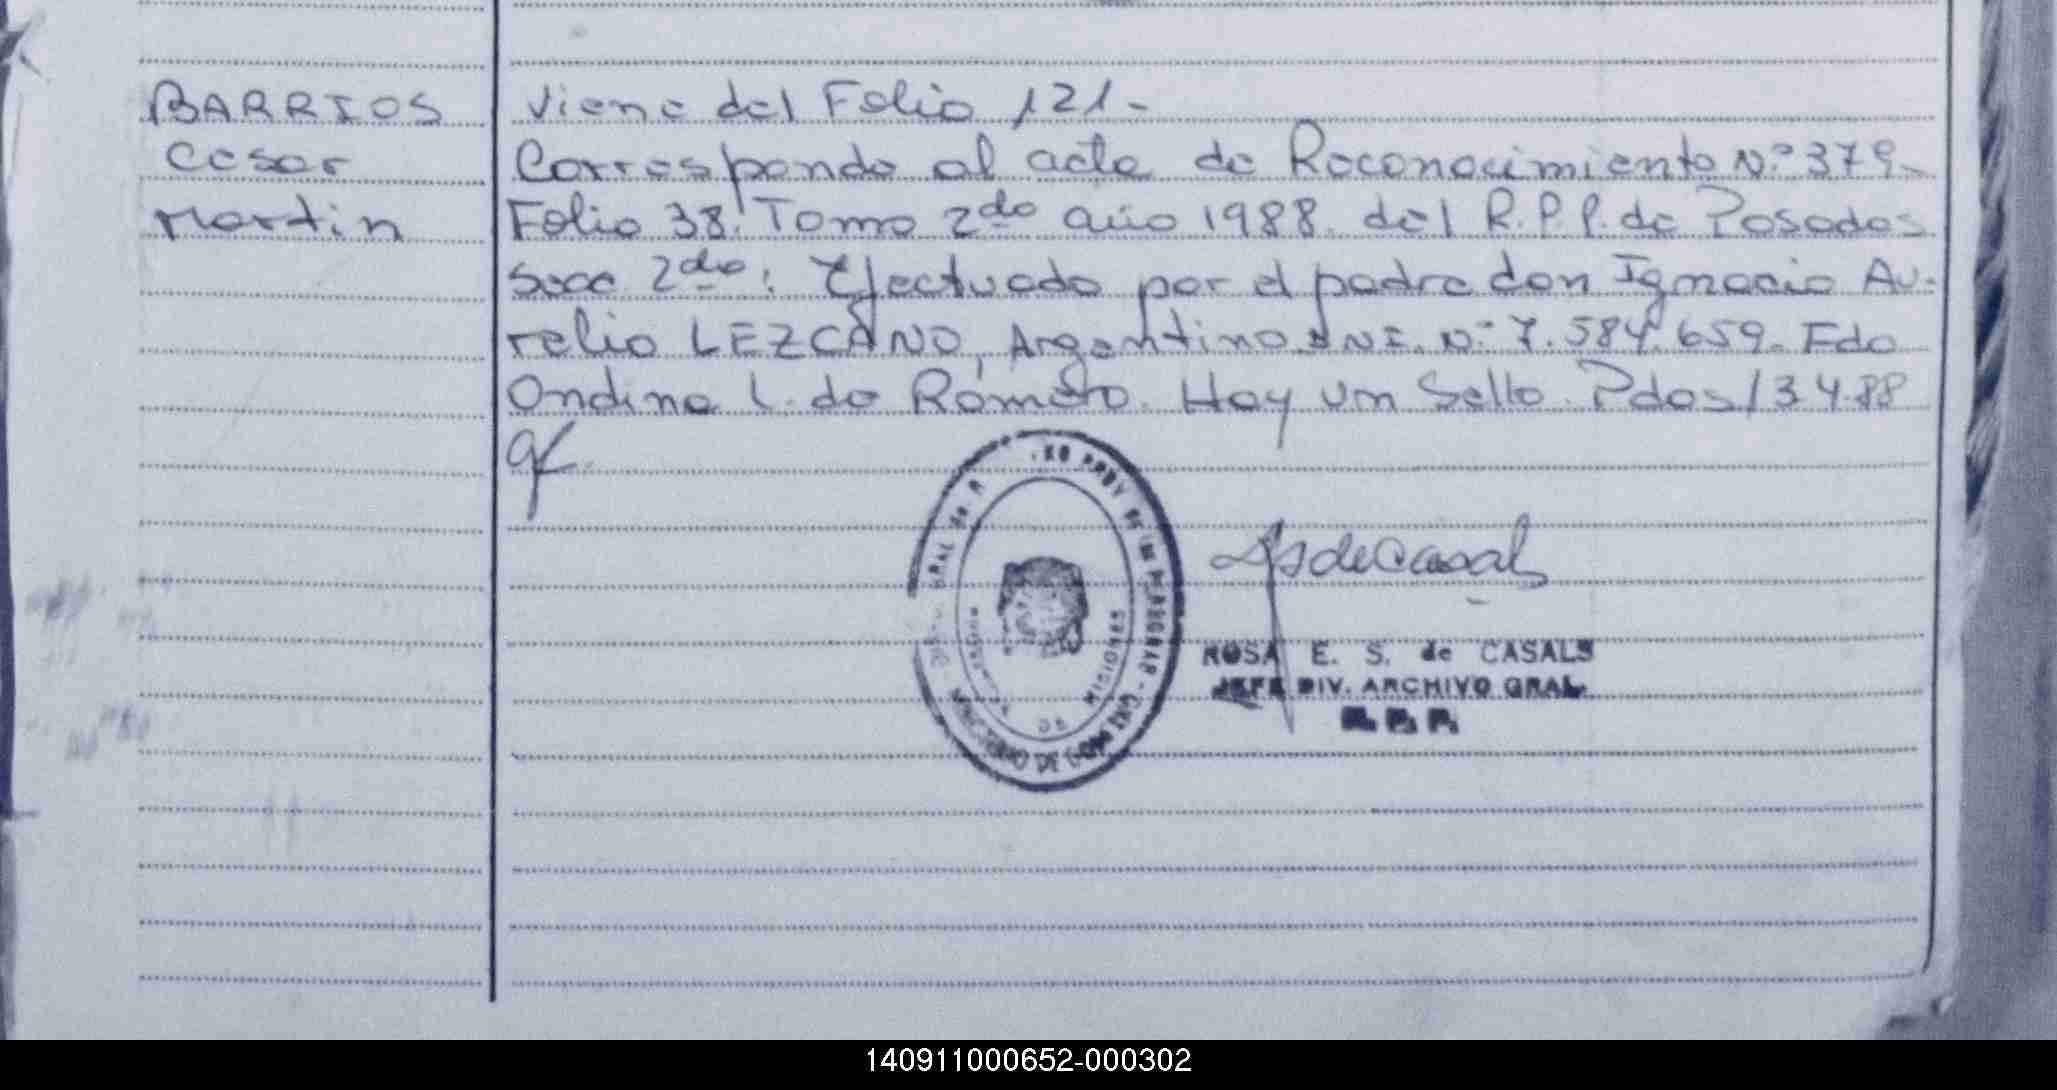 BARRIOS
Cesar
Martin
Viene del Folio 121-
Corresponde al acta de Reconocimiento Nº 379-
Folio 38. Tomo 2do año 1988. del R.P.P. de Posadas
Secc 2da: Efectuado por el padre don Ignacio Au-
relio LEZCANO, Argentino DNI. Nº 7.584.659. Fdo
Ondina L. de Romero. Hay un Sello. Pdas/3488
MINISTERIO DE GOBIERNO
DE MISIONES
ROSA E. S. de CASALS
JEFE DIV. ARCHIVO GRAL.
R. P. P.
140911000652-000302